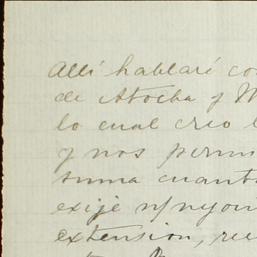 Allí hablaré co
de Atocha y M
lo cual creo
y nos permi
suma cuant
exije
extensión, re